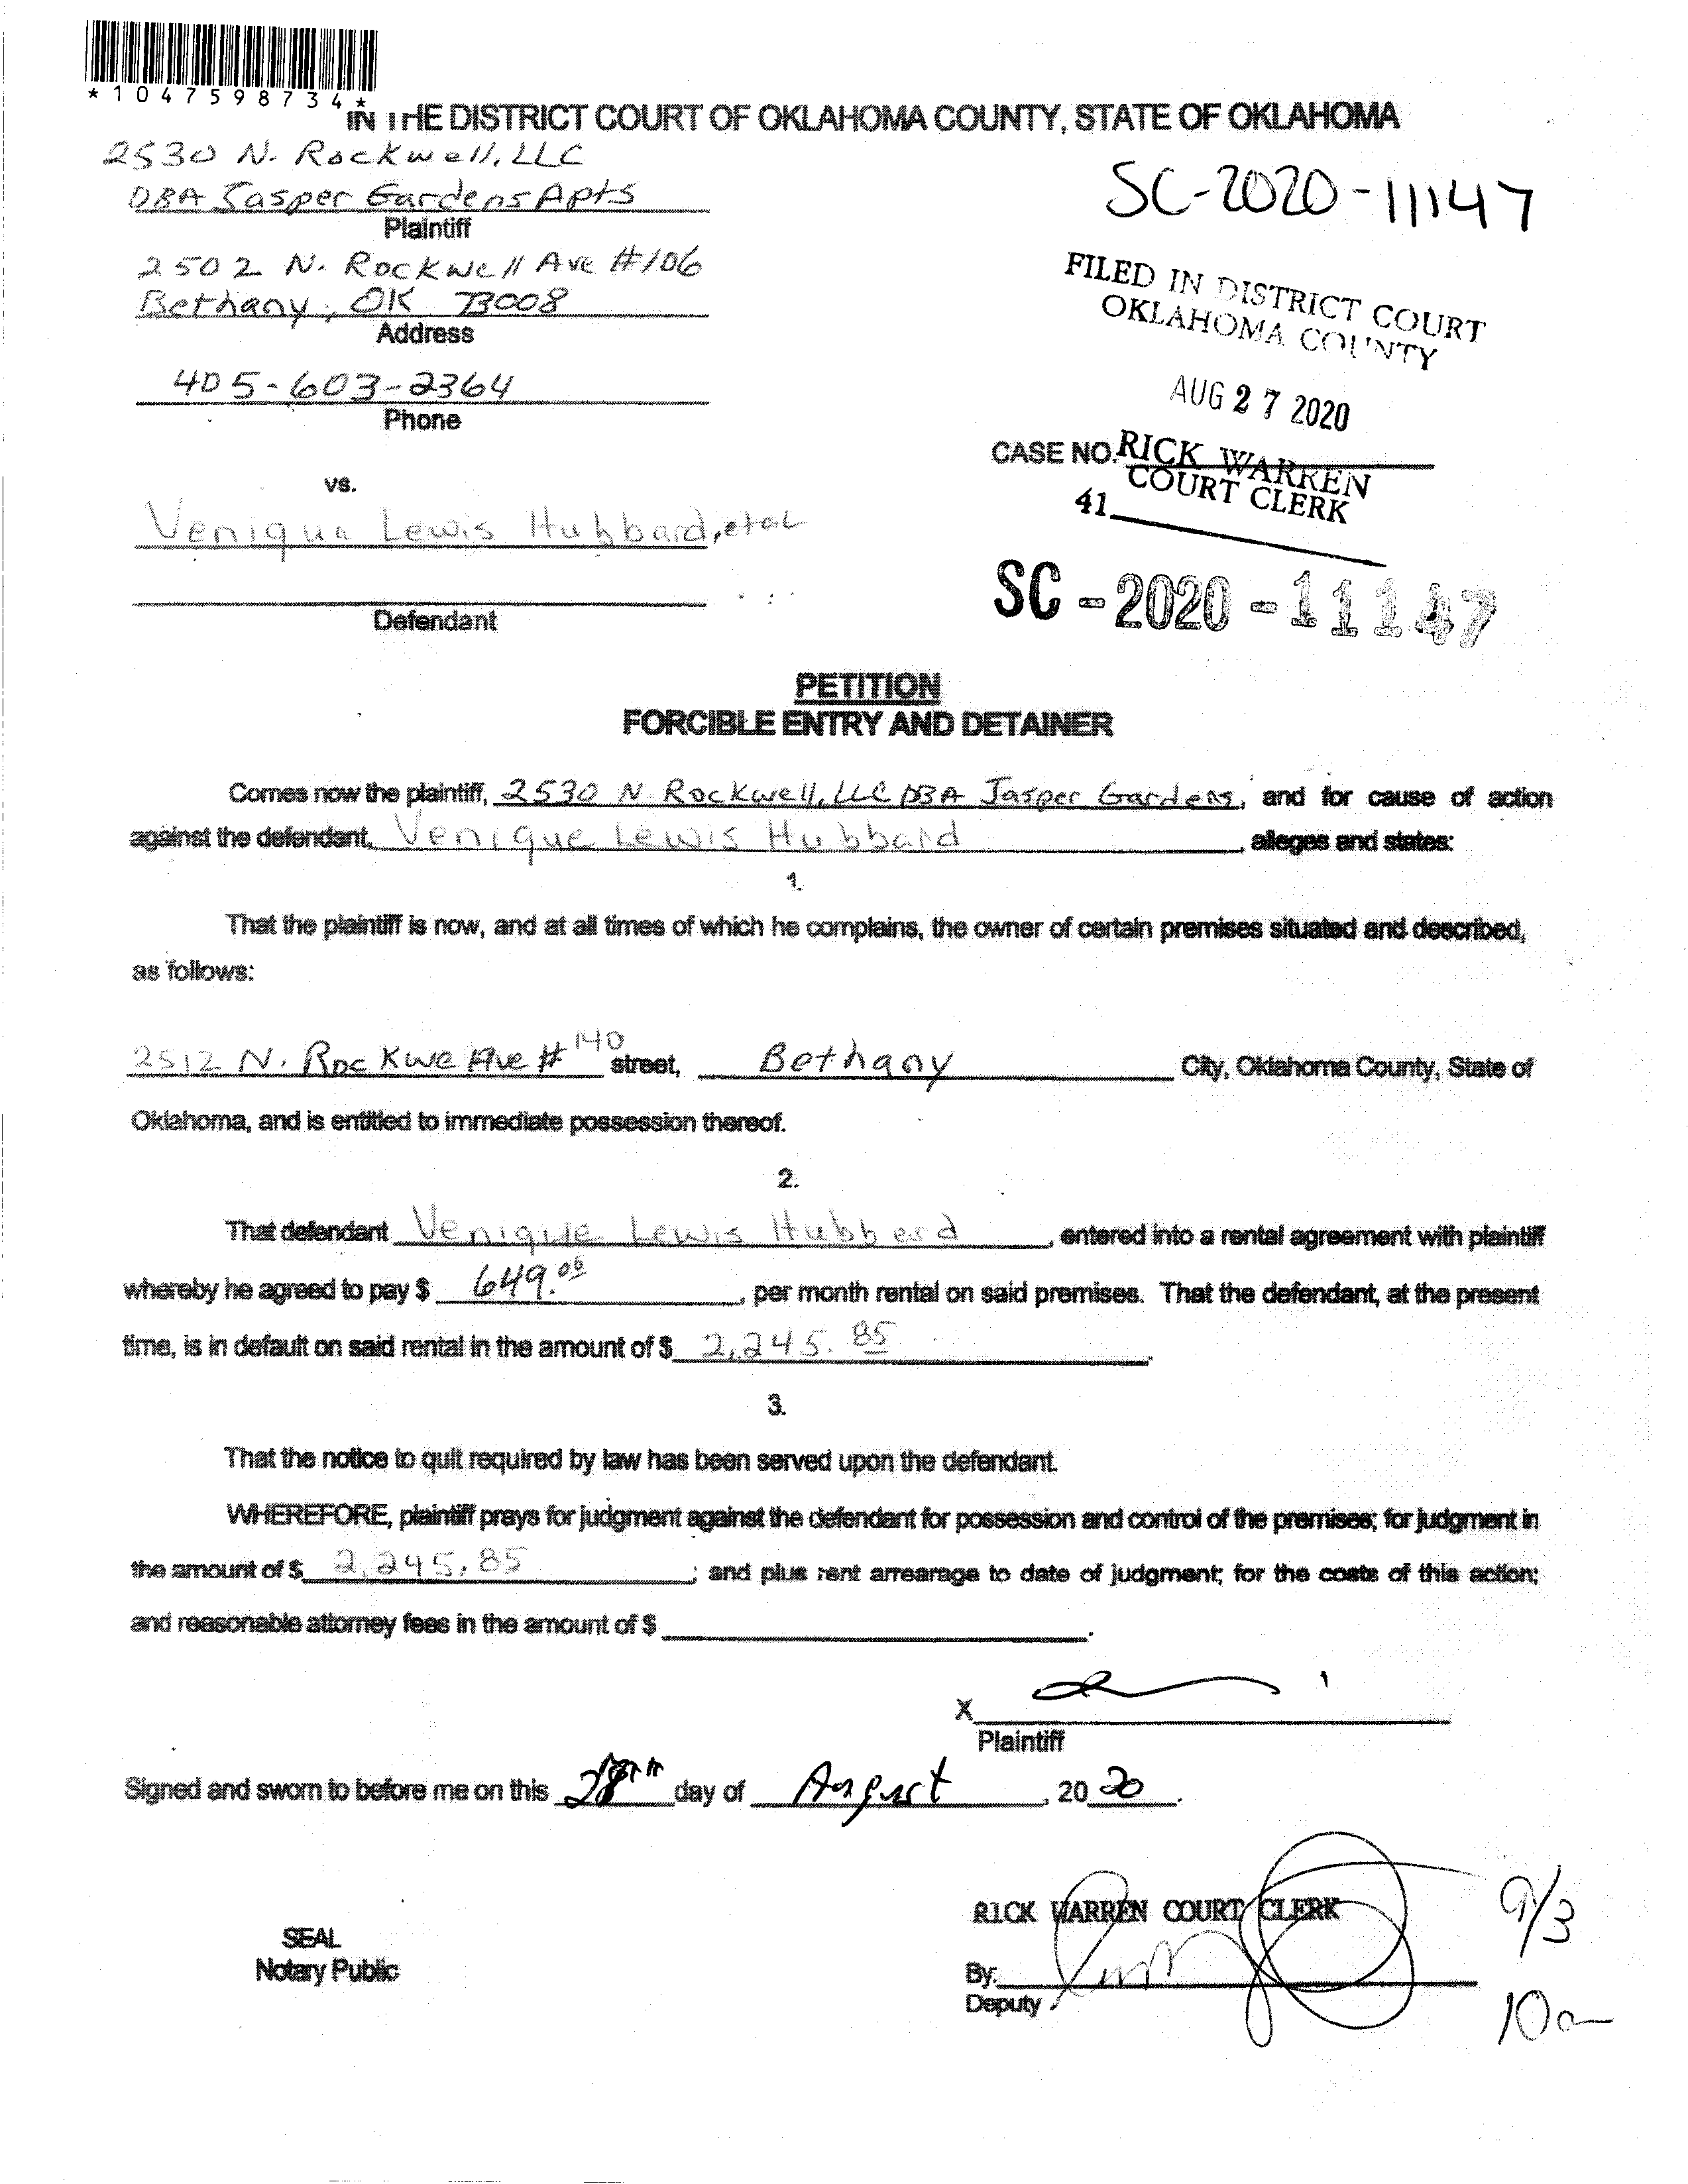 *1047598734*
IN THE DISTRICT COURT OF OKLAHOMA COUNTY, STATE OF OKLAHOMA
2530 N. Rockwell, LLC
DBA Jasper Gardens Apts
Plaintiff
2502 N. Rockwell Ave #106
Bethany, OK 73008
Address
405-603-2364
Phone
vs.
Venique Lewis Hubbard, et al
Defendant
SC-2020-11147
FILED IN DISTRICT COURT
OKLAHOMA COUNTY
AUG 27 2020
CASE NO.
RICK WARREN
COURT CLERK
41
SC-2020-11147
PETITION
FORCIBLE ENTRY AND DETAINER
Comes now the plaintiff, 2530 N. Rockwell, LLC DBA Jasper Gardens, and for cause of action
against the defendant, Venique Lewis Hubbard, alleges and states:
1.
That the plaintiff is now, and at all times of which he complains, the owner of certain premises situated and described,
as follows:
2512 N. Rockwe Ave # 140 street, Bethany City, Oklahoma County, State of
Oklahoma, and is entitled to immediate possession thereof.
2.
That defendant Venique Lewis Hubberd, entered into a rental agreement with plaintiff
whereby he agreed to pay $ 649.00, per month rental on said premises. That the defendant, at the present
time, is in default on said rental in the amount of $ 2,245.85
3.
That the notice to quit required by law has been served upon the defendant.
WHEREFORE, plaintiff prays for judgment against the defendant for possession and control of the premises; for judgment in
the amount of $ 2,245.85; and plus rent arrearage to date of judgment; for the costs of this action;
and reasonable attorney fees in the amount of $ .
X
Plaintiff
Signed and sworn to before me on this day of August, 2020.
SEAL
Notary Public
RICK WARREN COURT CLERK
By:
Deputy
9/3
10am